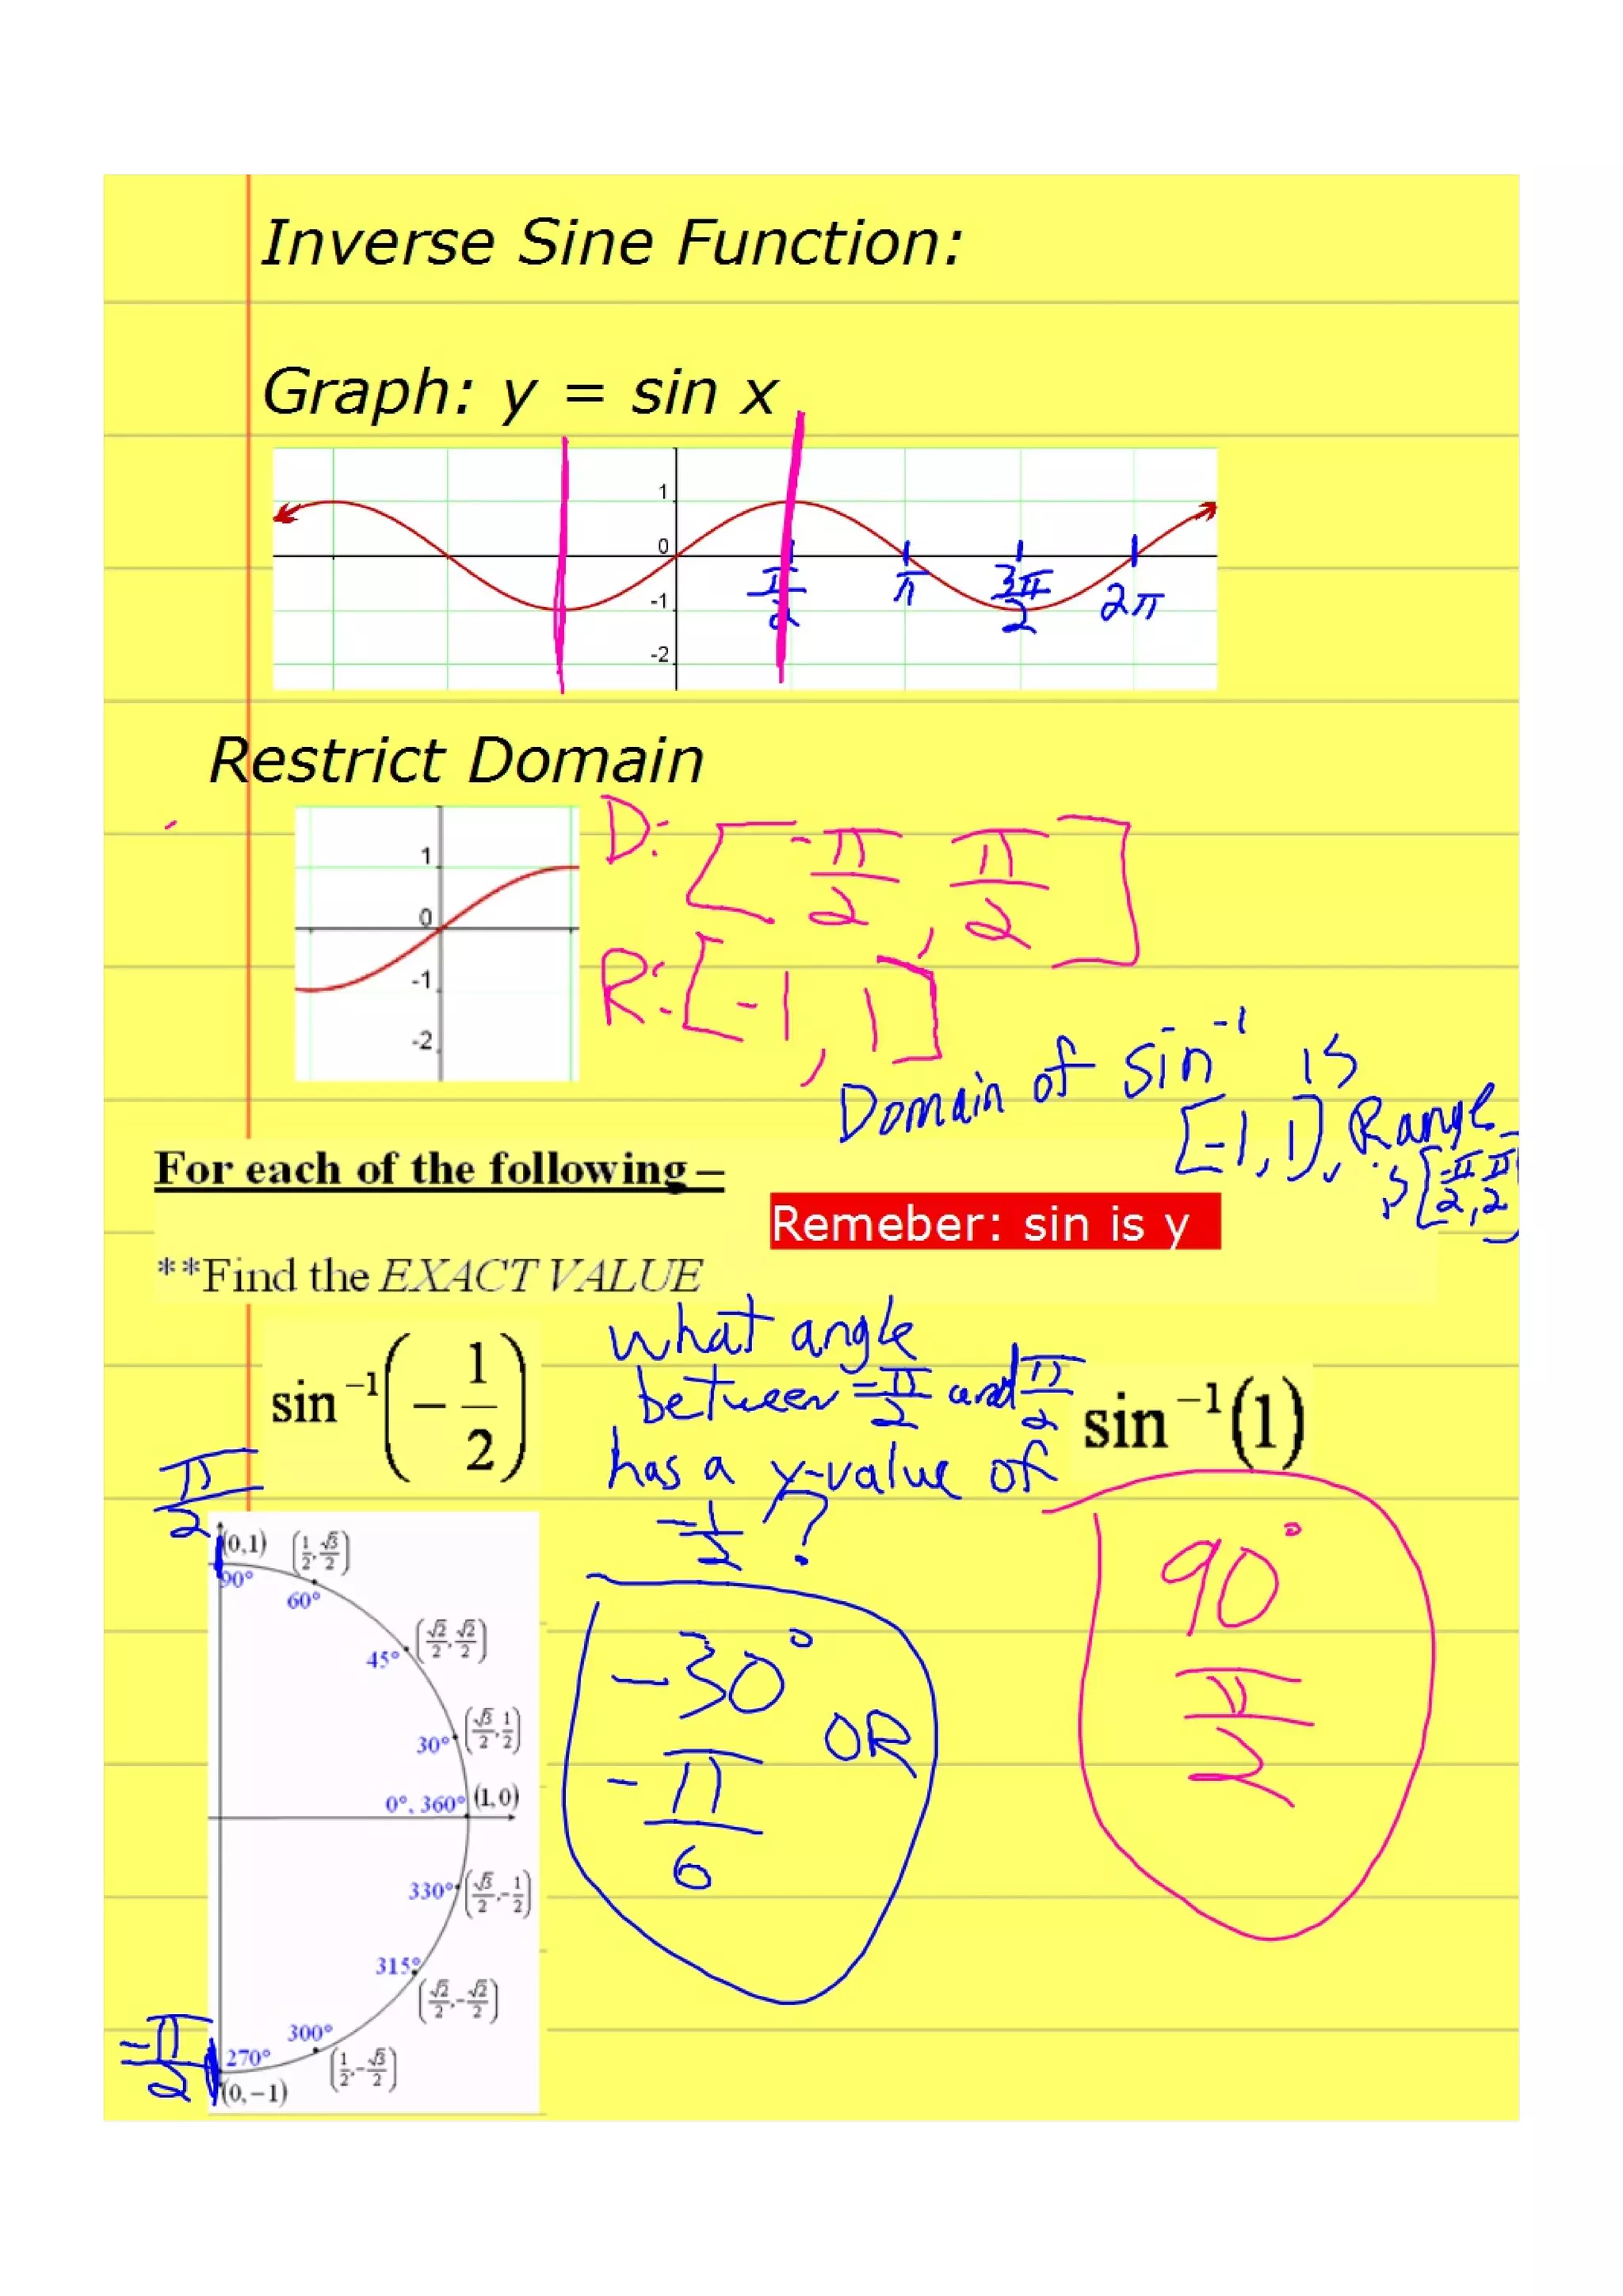 Inverse Sine Function:
Graph: y = sin x
1
0
-1
-2
π/2 π 3π/2 2π
Restrict Domain
1
0
-1
-2
D: [-π/2, π/2]
R: [-1, 1]
Domain of sin⁻¹ is
[-1, 1], Range
is [-π/2, π/2]
For each of the following –
Remeber: sin is y
**Find the EXACT VALUE
sin⁻¹(-1/2)
what angle
between -π/2 and π/2
has a y-value of
-1/2?
sin⁻¹(1)
π/2
(0,1) (1/2, √3/2)
90° 60°
45° (√2/2, √2/2)
30° (√3/2, 1/2)
0°, 360° (1,0)
330° (√3/2, -1/2)
315° (√2/2, -√2/2)
300° (1/2, -√3/2)
270°
(0, -1)
-π/2
-30° OR
-π/6
90°
π/2